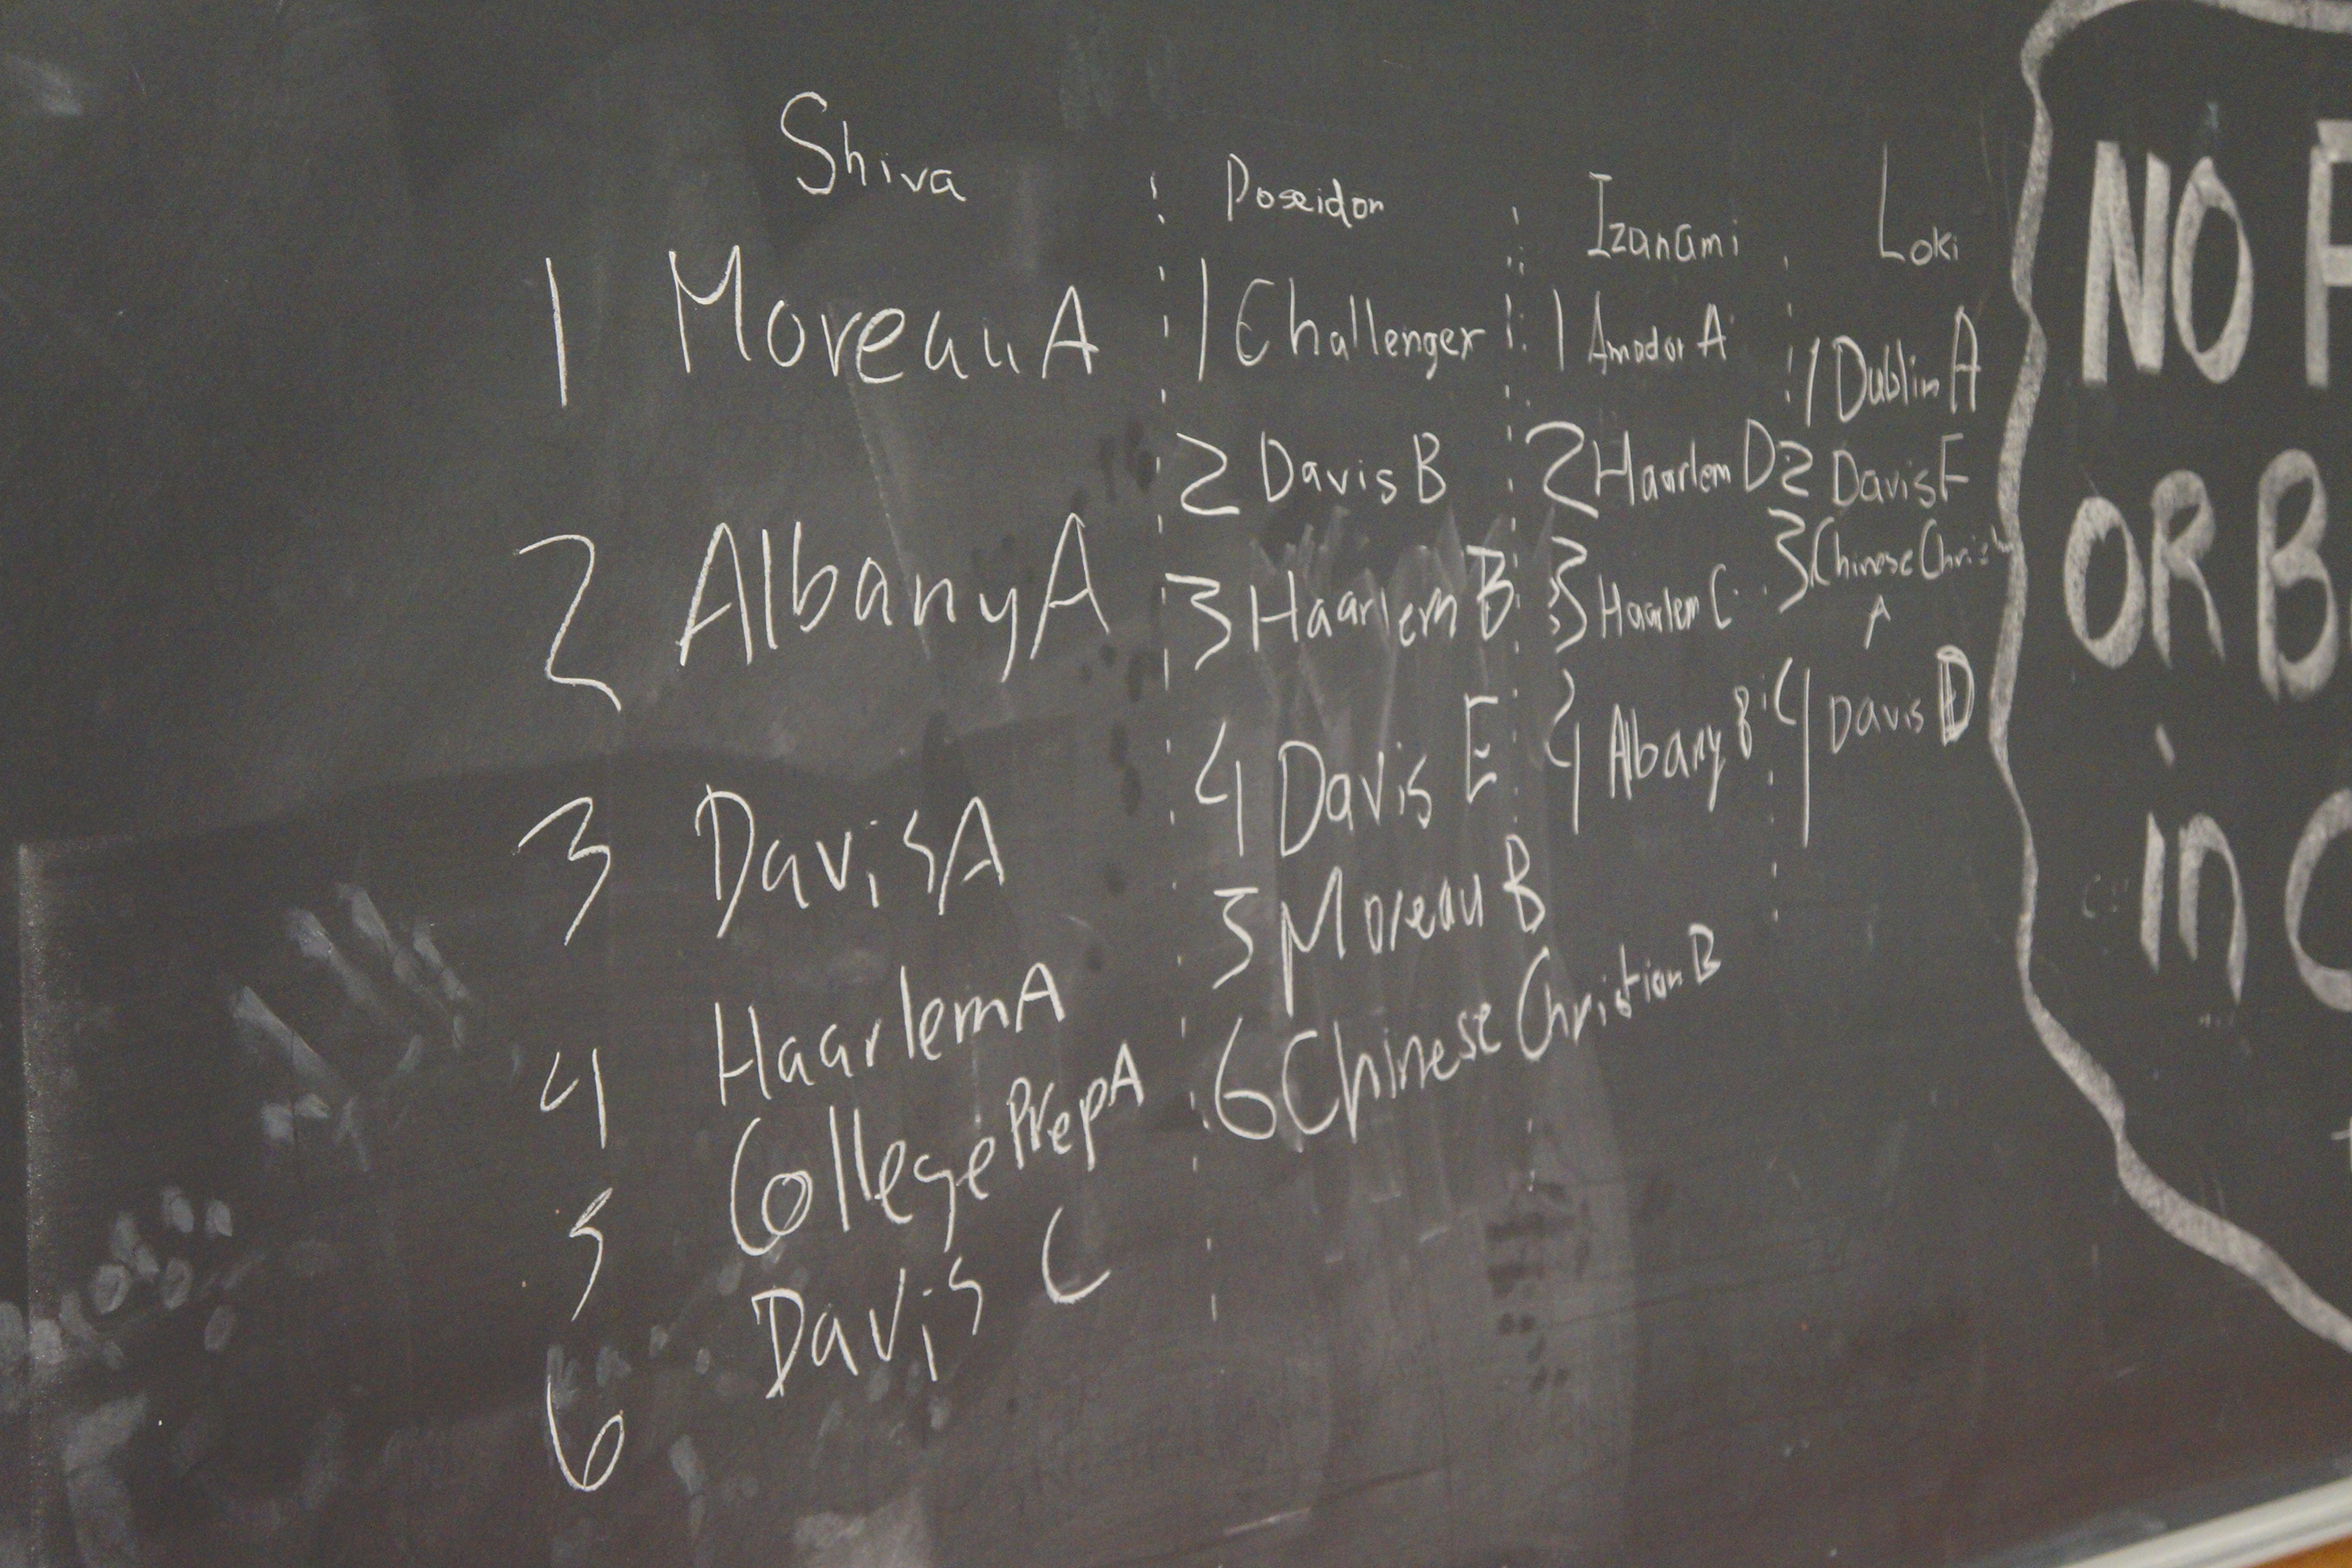 Shiva
1 Moreau A
2 Albany A
3 Davis A
4 Haarlem A
5 College Prep A
6 Davis C
Poseidon
1 Challenger
2 Davis B
3 Haarlem B
4 Davis E
5 Moreau B
6 Chinese Christian B
Izanami
1 Amador A
2 Haarlem D
3 Haarlem C
4 Albany B
Loki
1 Dublin A
2 Davis F
3 Chinese Christ
A
4 Davis D
NO
OR B
in